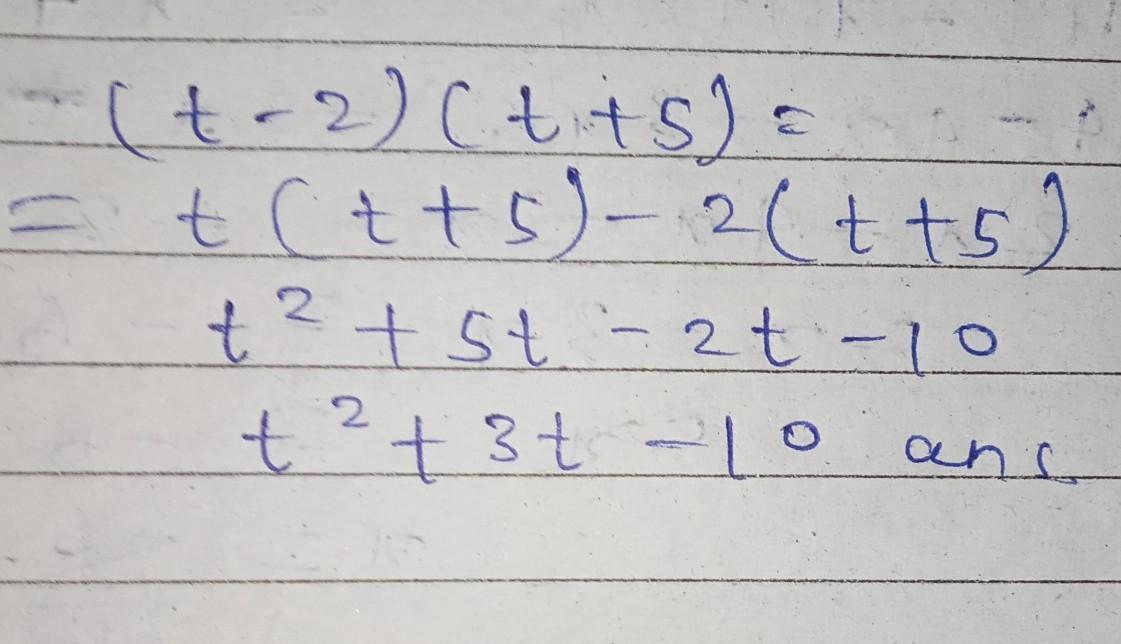 (t-2)(t+5)=
= t(t+5)-2(t+5)
t² + 5t - 2t - 10
t² + 3t - 10 ans